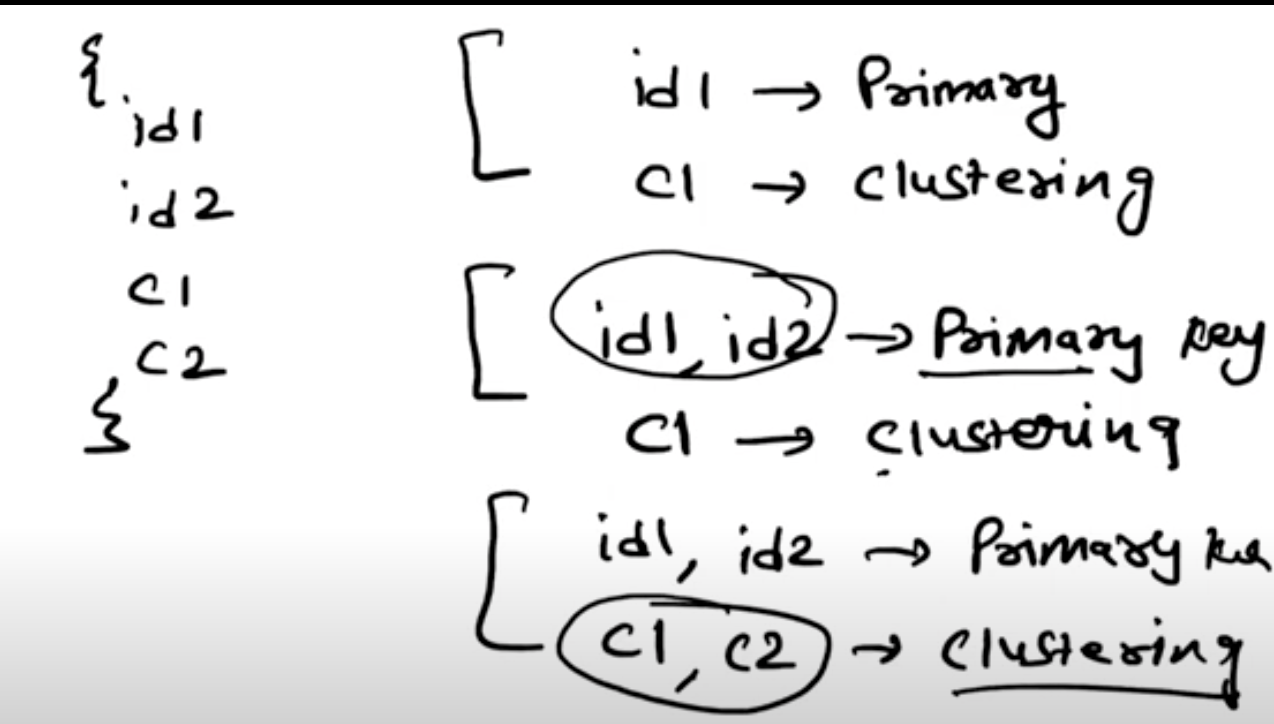 {
id1
id2
C1
C2
}
id1 → Primary
C1 → Clustering
id1, id2 → Primary key
C1 → Clustering
id1, id2 → Primary
C1, C2 → Clustering